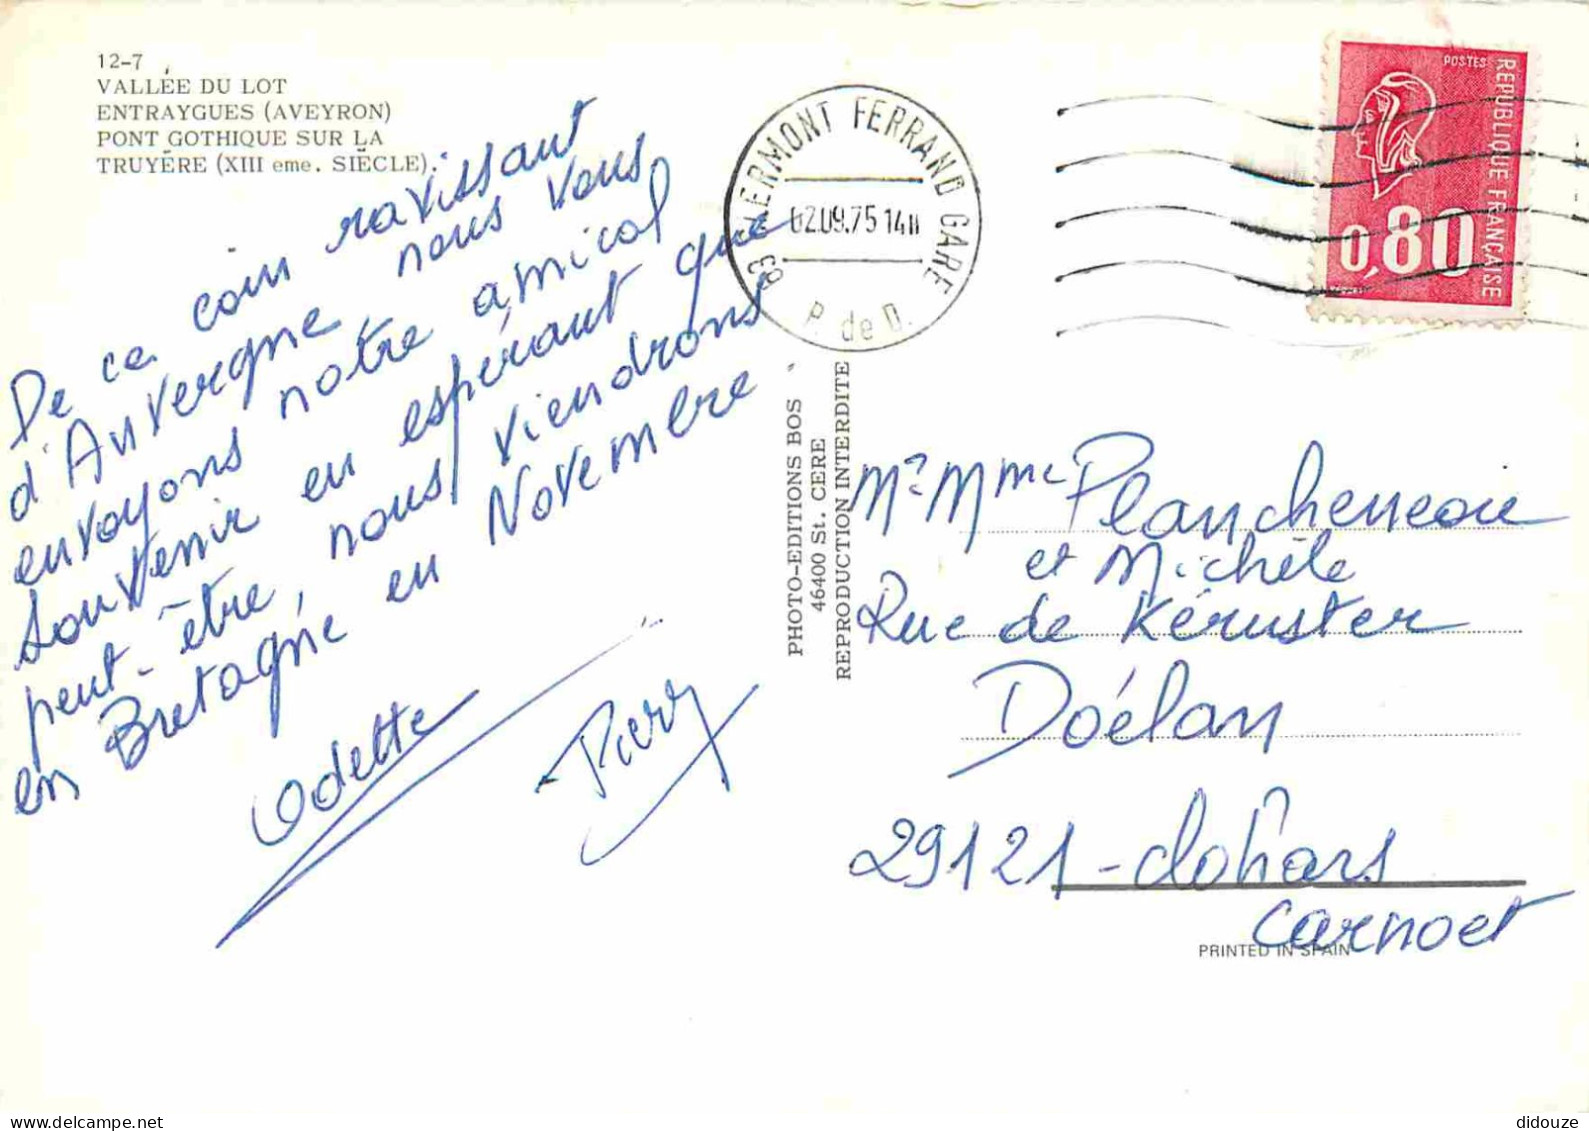 12-7
VALLÉE DU LOT
ENTRAYGUES (AVEYRON)
PONT GOTHIQUE SUR LA
TRUYÈRE (XIII eme. SIÈCLE).
De ce coin ravissant
d'Auvergne, nous vous
envoyons notre amical
souvenir en espérant que
peut-être, nous viendrons
en Bretagne en Novembre
Odette
CLERMONT FERRAND GARE
63
02.09.75 14H
P. de D.
POSTES
REPUBLIQUE FRANÇAISE
0,80
PHOTO-EDITIONS BOS
46400 St. CERE
REPRODUCTION INTERDITE
Mr Mme Plancheneou
et Michèle
Rue de Kéruster
Doélan
29121 - Clohars
Carnoet
PRINTED IN SPAIN
didouze